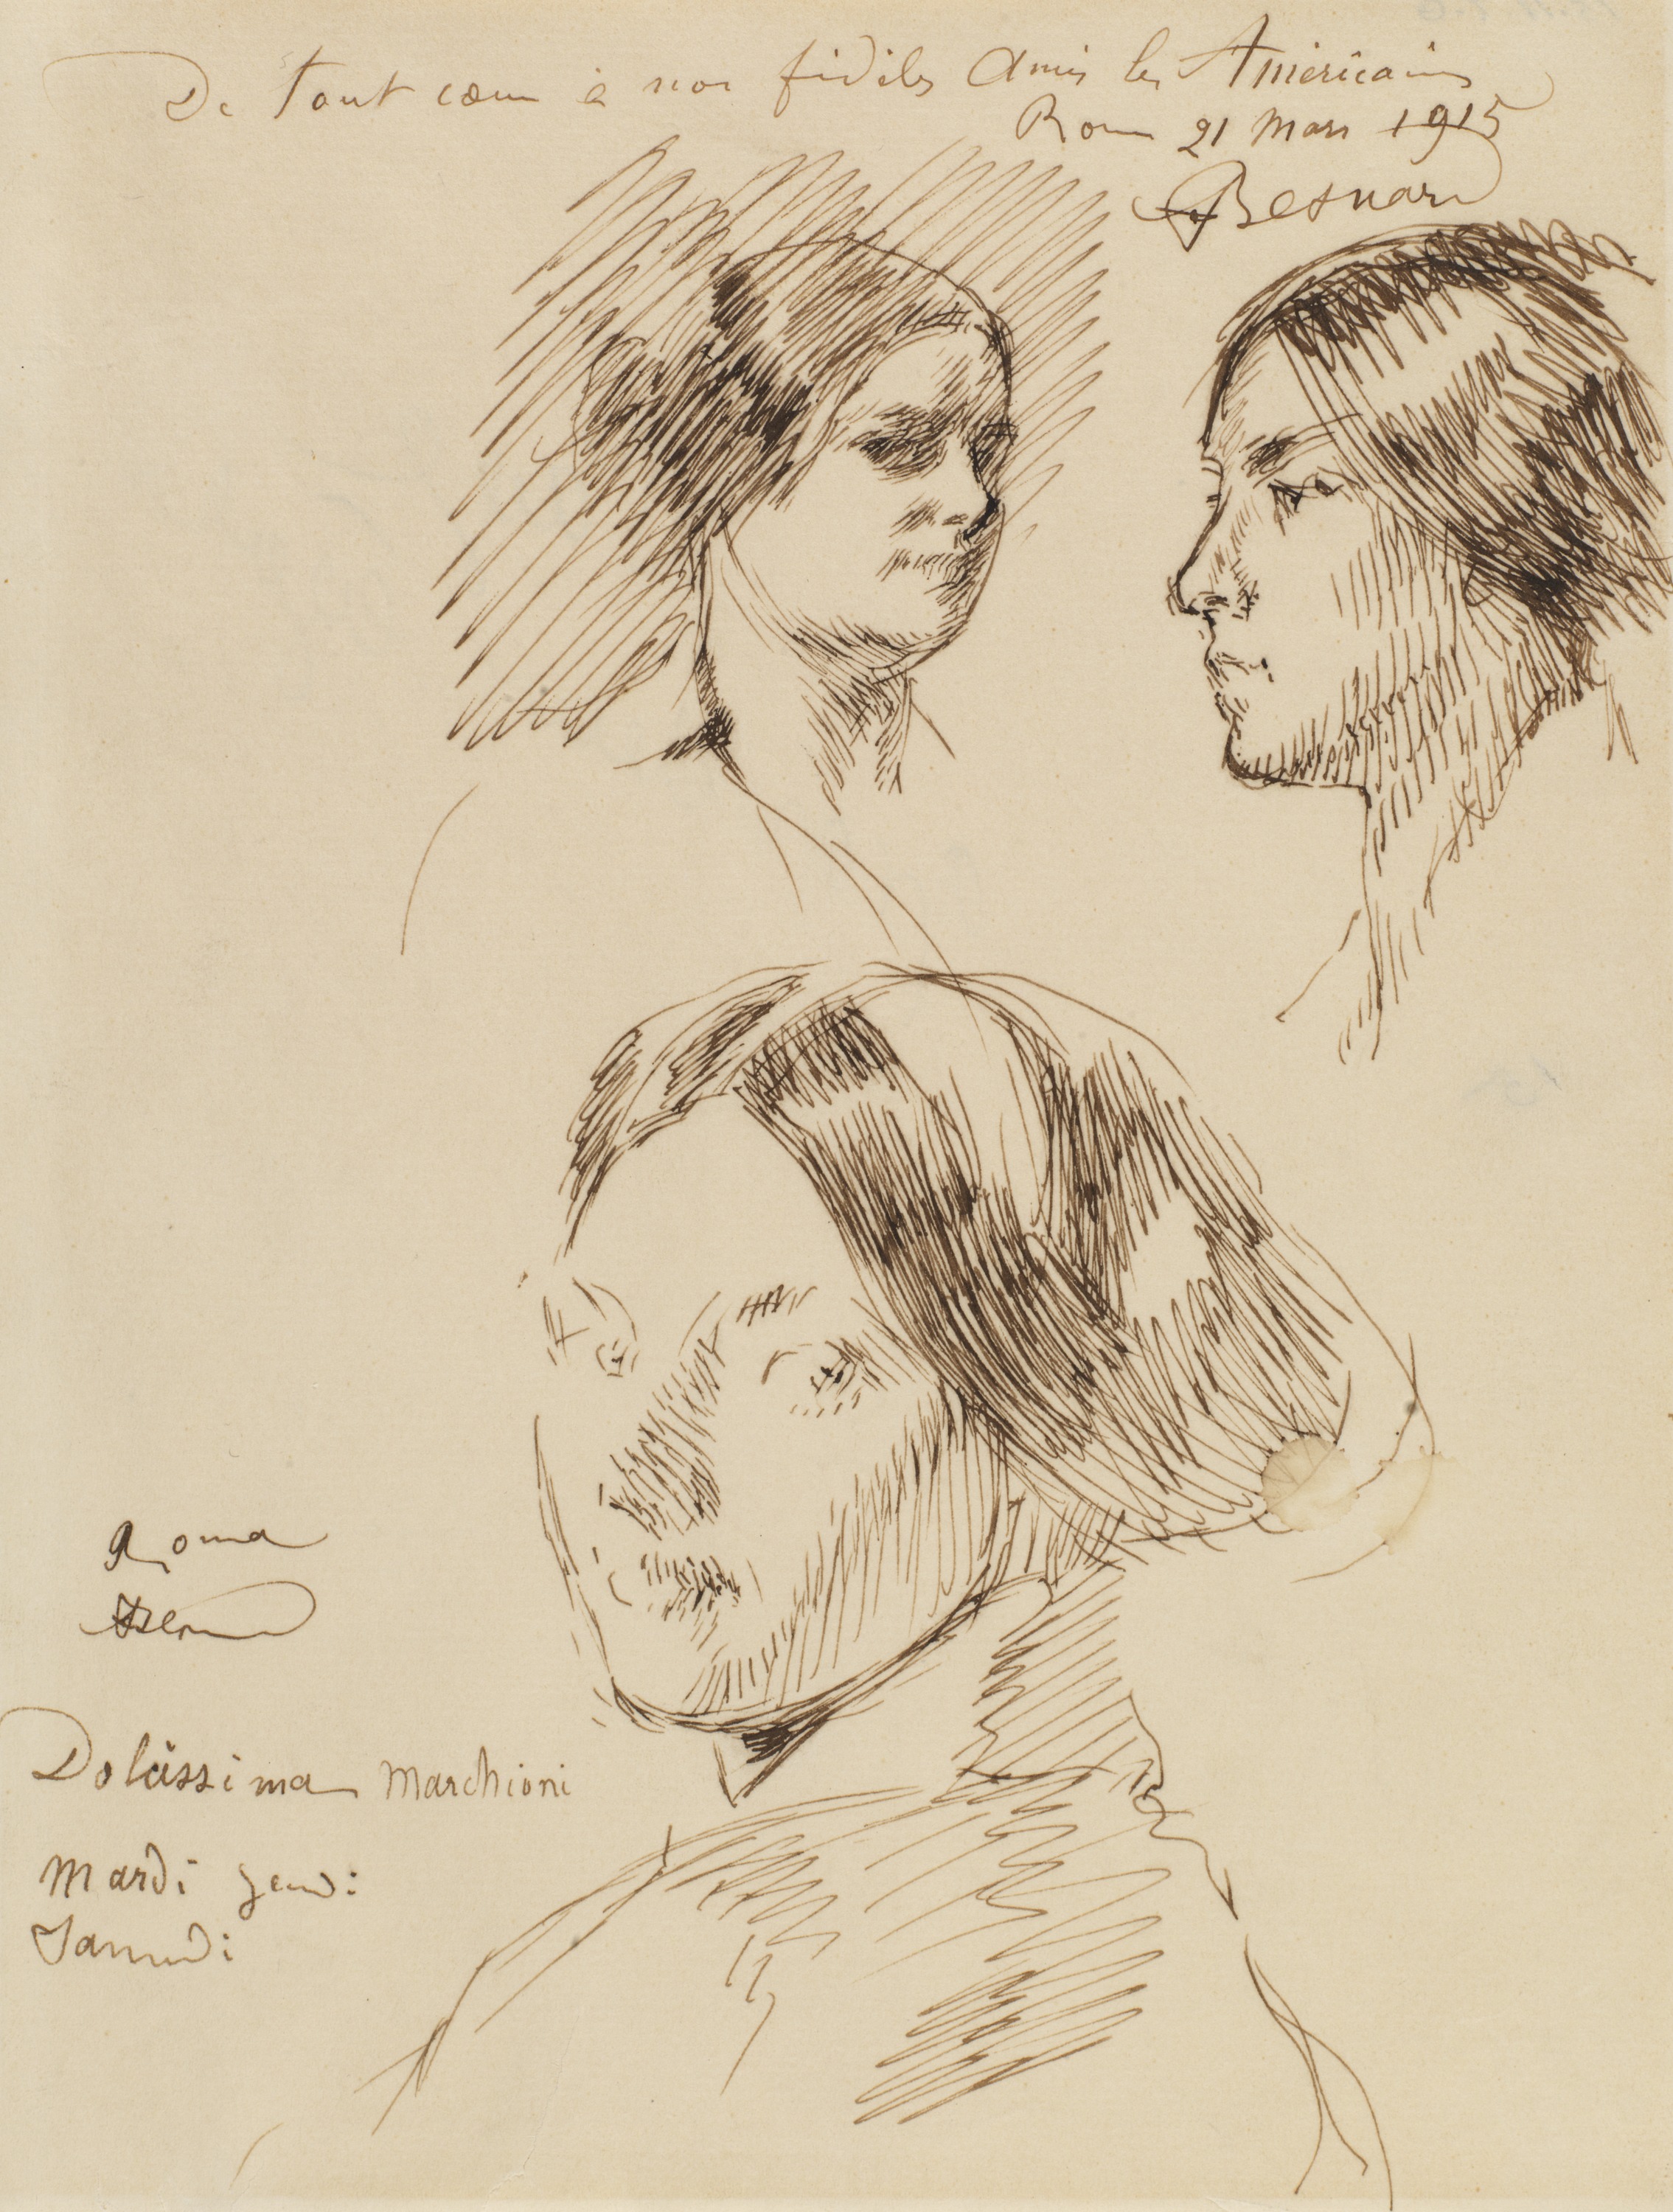 De tout cœur à nos fidèles Amis les Américains
Rome 21 Mars 1915
Besnard
Roma
Dolcissima Marchioni
Mardi Jeudi
Samedi